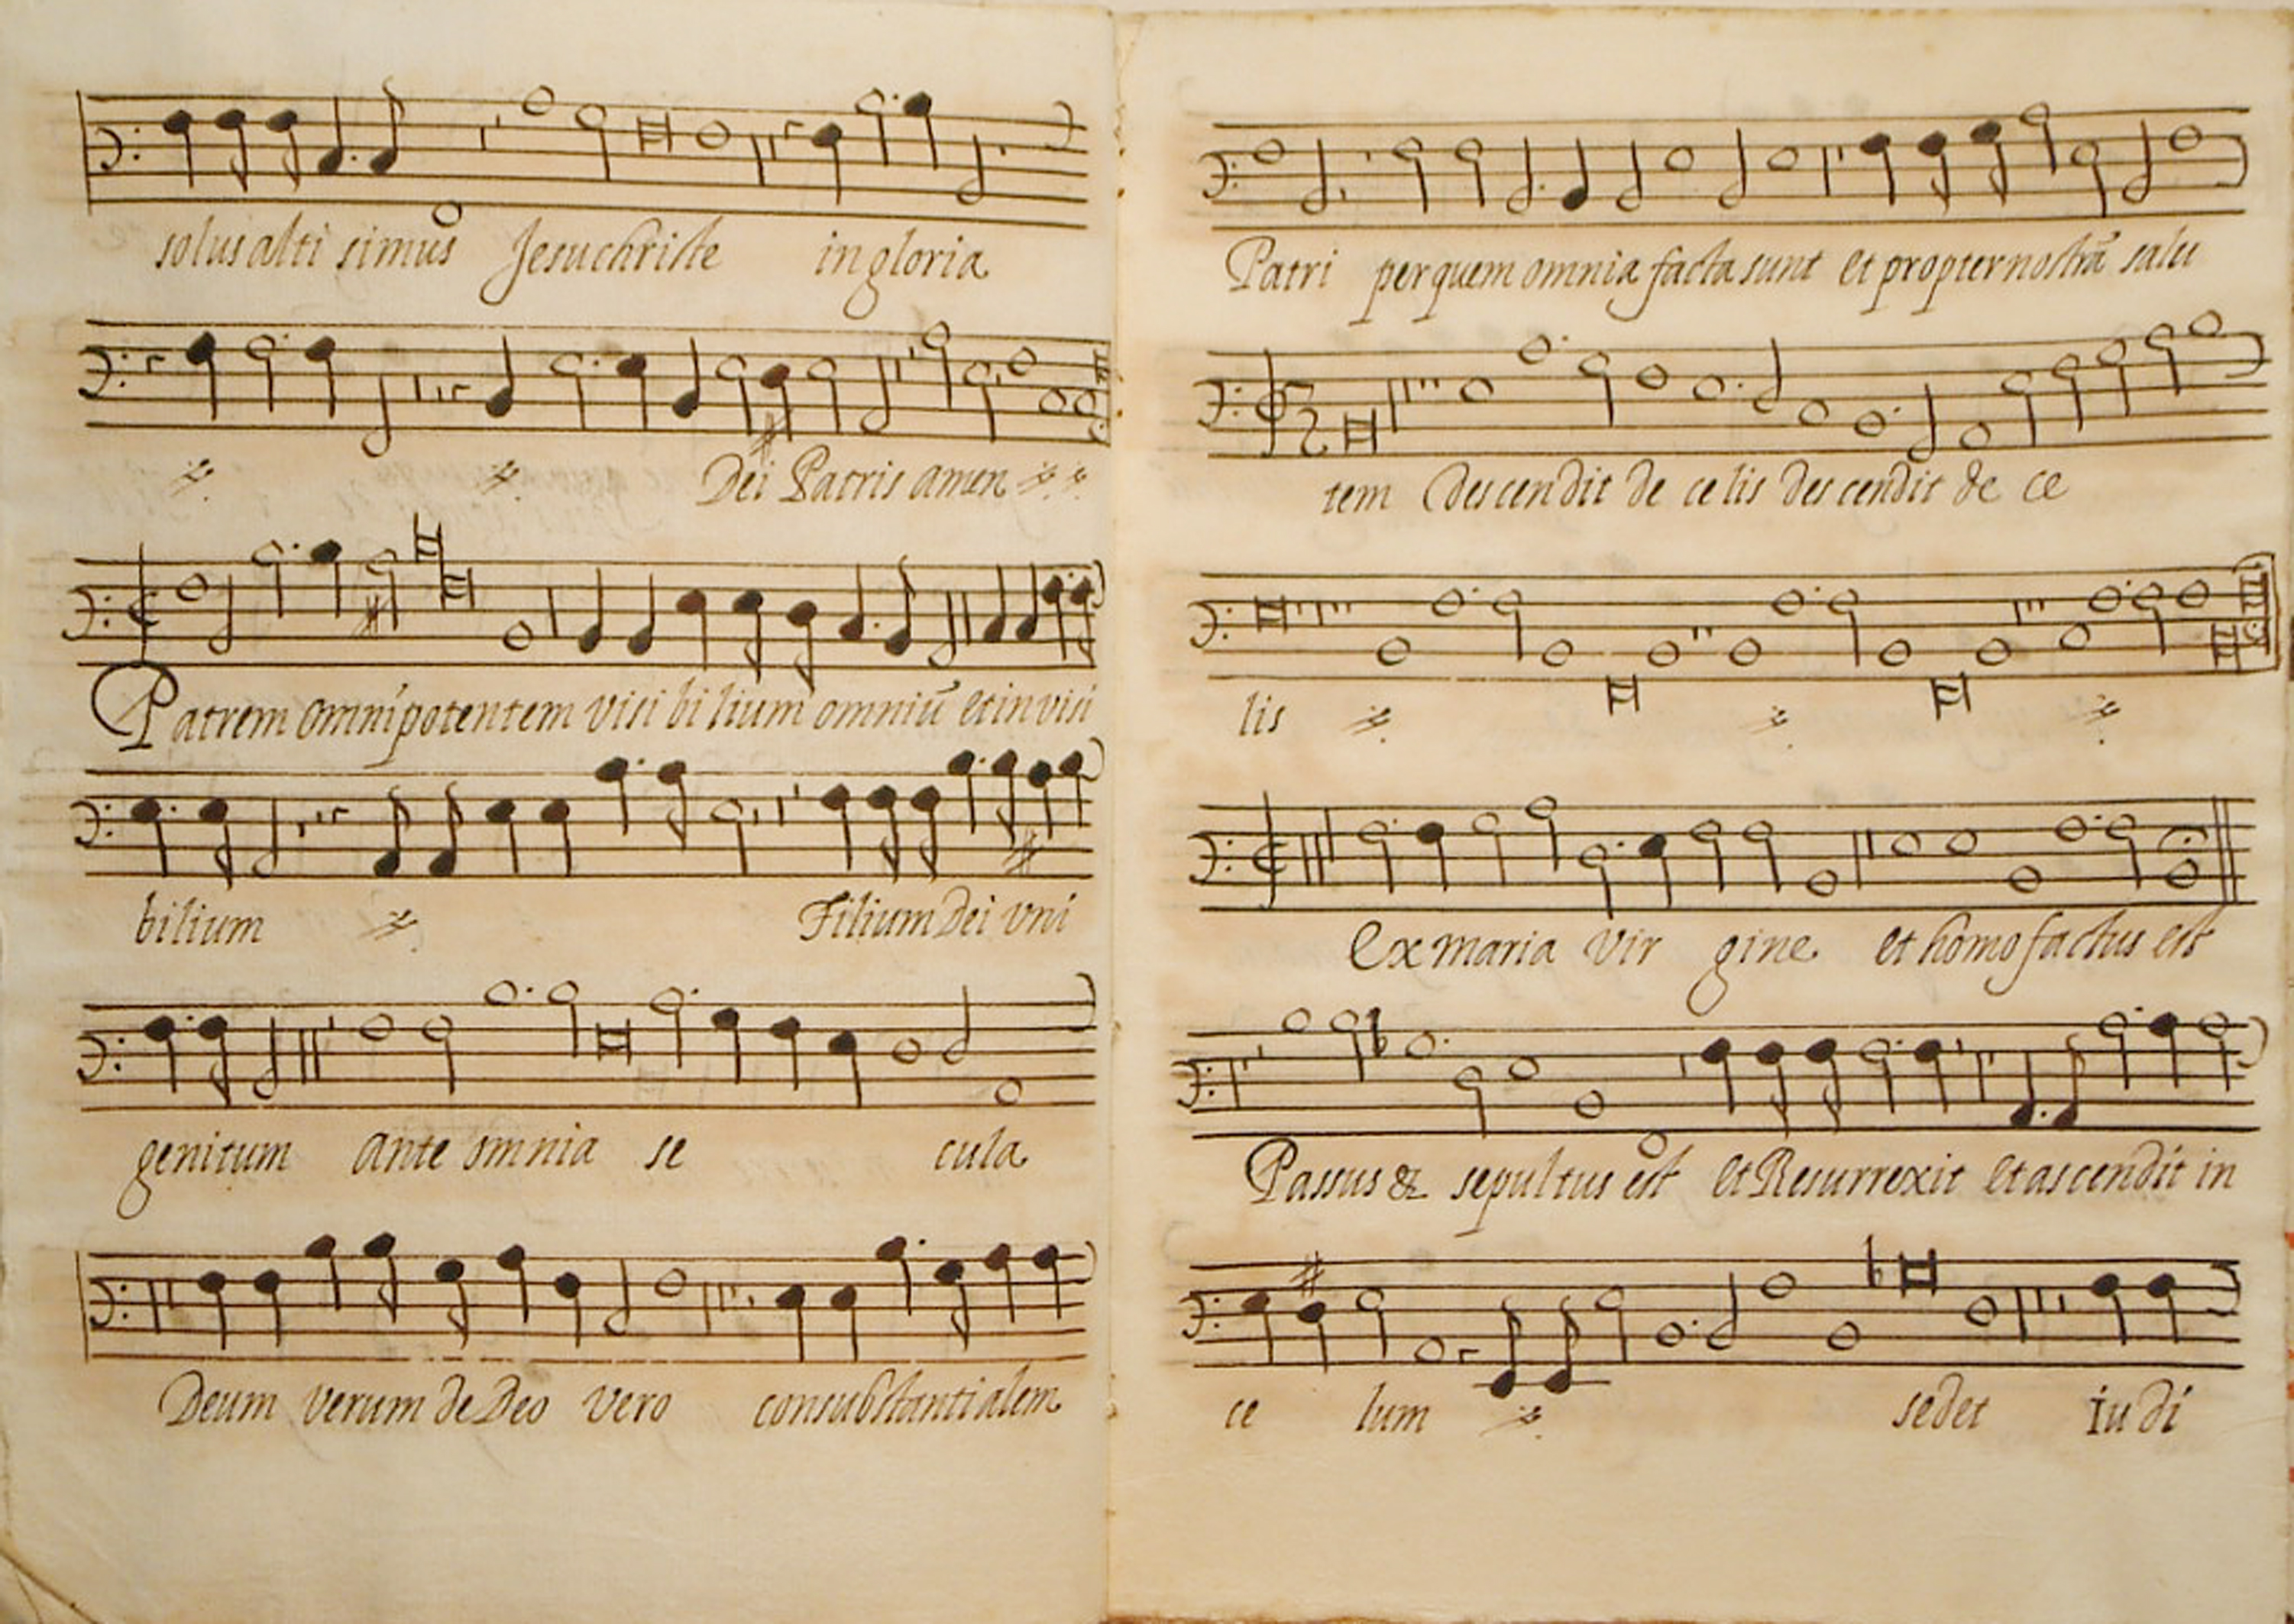 solus alti simus Jesu christe in gloria
Dei Patris amen
Patrem omnipotentem visi bi lium omniū et in visi
bilium Filium Dei vni
genitum ante omnia se cula
Deum verum de Deo vero consubstantialem
Patri per quem omnia facta sunt et propter nostrā salu
tem descendit de ce lis des cendit de ce
lis
Ex maria vir gine et homo factus est
Passus & sepultus est et Resurrexit et ascendit in
ce lum sedet iu di